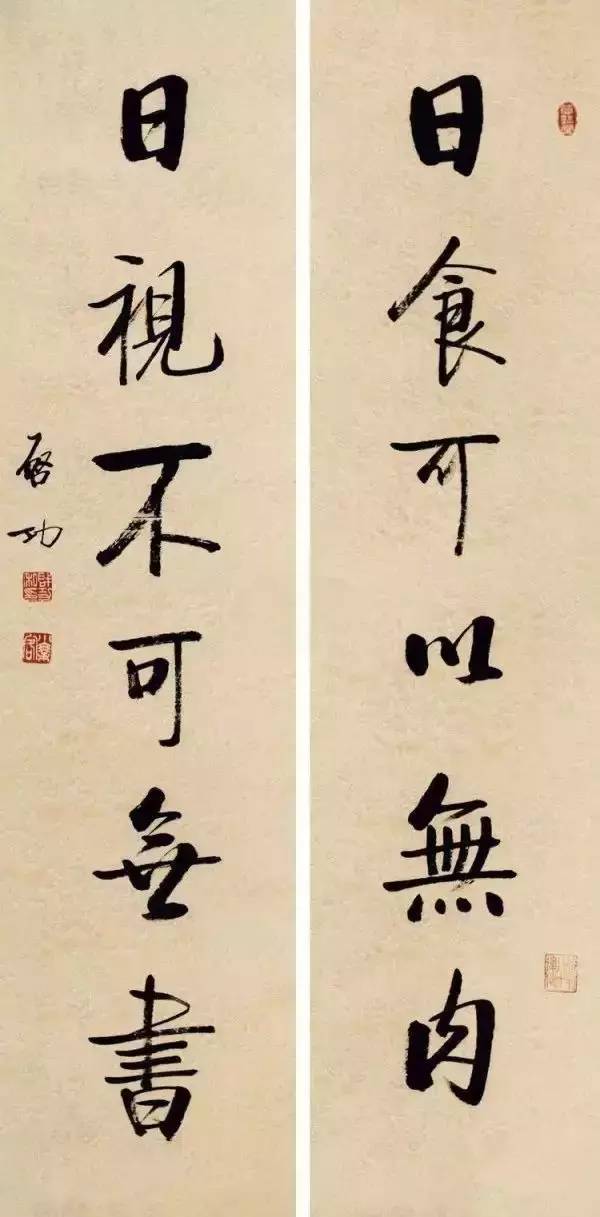 日食可以無肉
日視不可無書
啓功